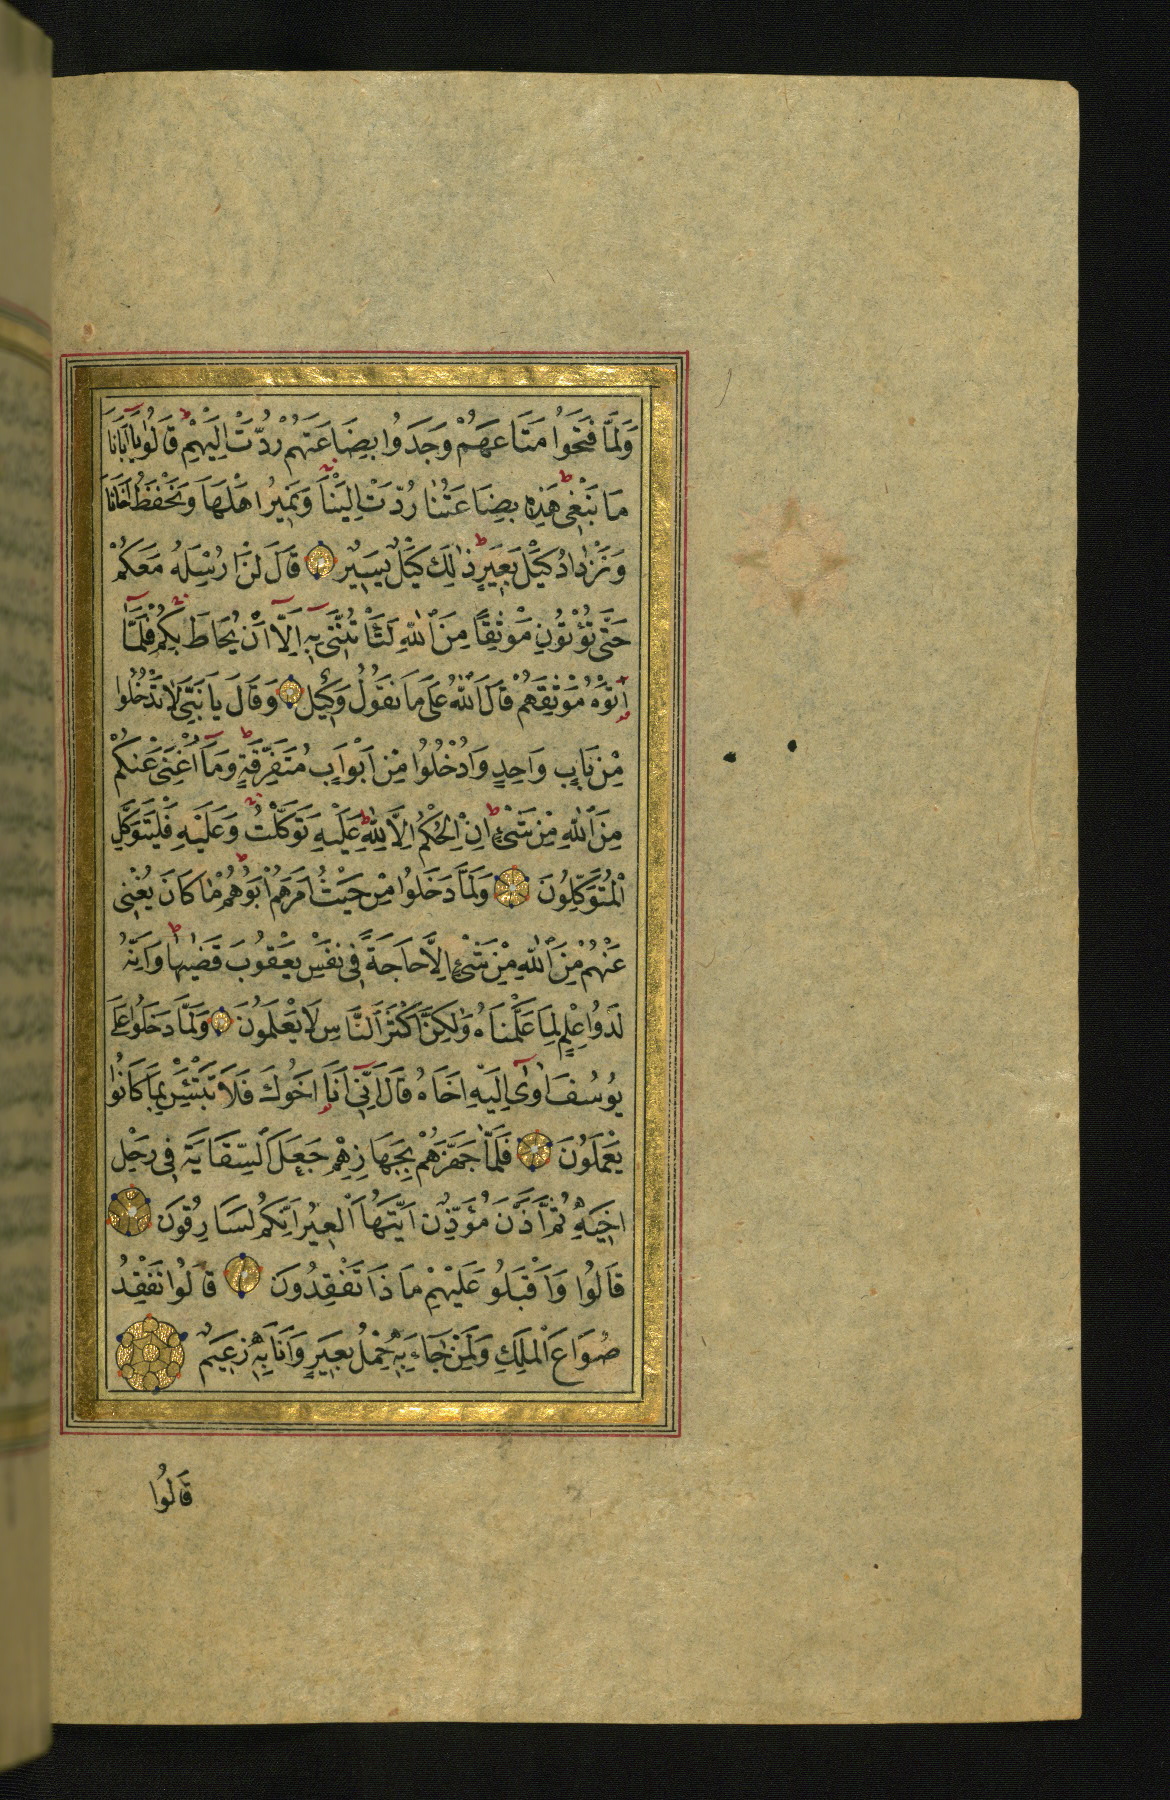 وَلَمَّا فَتَحُوا مَتَاعَهُمْ وَجَدُوا بِضَاعَتَهُمْ رُدَّتْ اِلَيْهِمْ قَالُوا يَا اَبَانَا
مَا نَبْغِى هٰذِهِ بِضَاعَتُنَا رُدَّتْ اِلَيْنَا وَنَمِيرُ اَهْلَهَا وَنَحْفَظُ اَخَانَا
وَنَزْدَادُ كَيْلَ بَعِيرٍ ذٰلِكَ كَيْلٌ يَسِيرٌ قَالَ لَنْ اُرْسِلَهُ مَعَكُمْ
حَتّٰى تُؤْتُونِ مَوْثِقًا مِنَ اللّٰهِ لَتَاْتُنَّنِى بِهِ اِلَّا اَنْ يُحَاطَ بِكُمْ فَلَمَّا
اٰتَوْهُ مَوْثِقَهُمْ قَالَ اللّٰهُ عَلٰى مَا نَقُولُ وَكِيلٌ وَقَالَ يَا بَنِىَّ لَا تَدْخُلُوا
مِنْ بَابٍ وَاحِدٍ وَادْخُلُوا مِنْ اَبْوَابٍ مُتَفَرِّقَةٍ وَمَا اُغْنِى عَنْكُمْ
مِنَ اللّٰهِ مِنْ شَىْءٍ اِنِ الْحُكْمُ اِلَّا لِلّٰهِ عَلَيْهِ تَوَكَّلْتُ وَعَلَيْهِ فَلْيَتَوَكَّلِ
الْمُتَوَكِّلُونَ وَلَمَّا دَخَلُوا مِنْ حَيْثُ اَمَرَهُمْ اَبُوهُمْ مَا كَانَ يُغْنِى
عَنْهُمْ مِنَ اللّٰهِ مِنْ شَىْءٍ اِلَّا حَاجَةً فِى نَفْسِ يَعْقُوبَ قَضٰيهَا وَاِنَّهُ
لَذُوا عِلْمٍ لِمَا عَلَّمْنَاهُ وَلٰكِنَّ اَكْثَرَ النَّاسِ لَا يَعْلَمُونَ وَلَمَّا دَخَلُوا عَلٰى
يُوسُفَ اٰوٰى اِلَيْهِ اَخَاهُ قَالَ اِنِّى اَنَا اَخُوكَ فَلَا تَبْتَئِسْ بِمَا كَانُوا
يَعْمَلُونَ فَلَمَّا جَهَّزَهُمْ بِجَهَازِهِمْ جَعَلَ السِّقَايَةَ فِى رَحْلِ
اَخِيهِ ثُمَّ اَذَّنَ مُؤَذِّنٌ اَيَّتُهَا الْعِيرُ اِنَّكُمْ لَسَارِقُونَ
قَالُوا وَاَقْبَلُو عَلَيْهِمْ مَاذَا تَفْقِدُونَ قَالُوا نَفْقِدُ
صُوَاعَ الْمَلِكِ وَلِمَنْ جَاءَ بِهِ حِمْلُ بَعِيرٍ وَاَنَا بِهِ زَعِيمٌ
قَالُوا